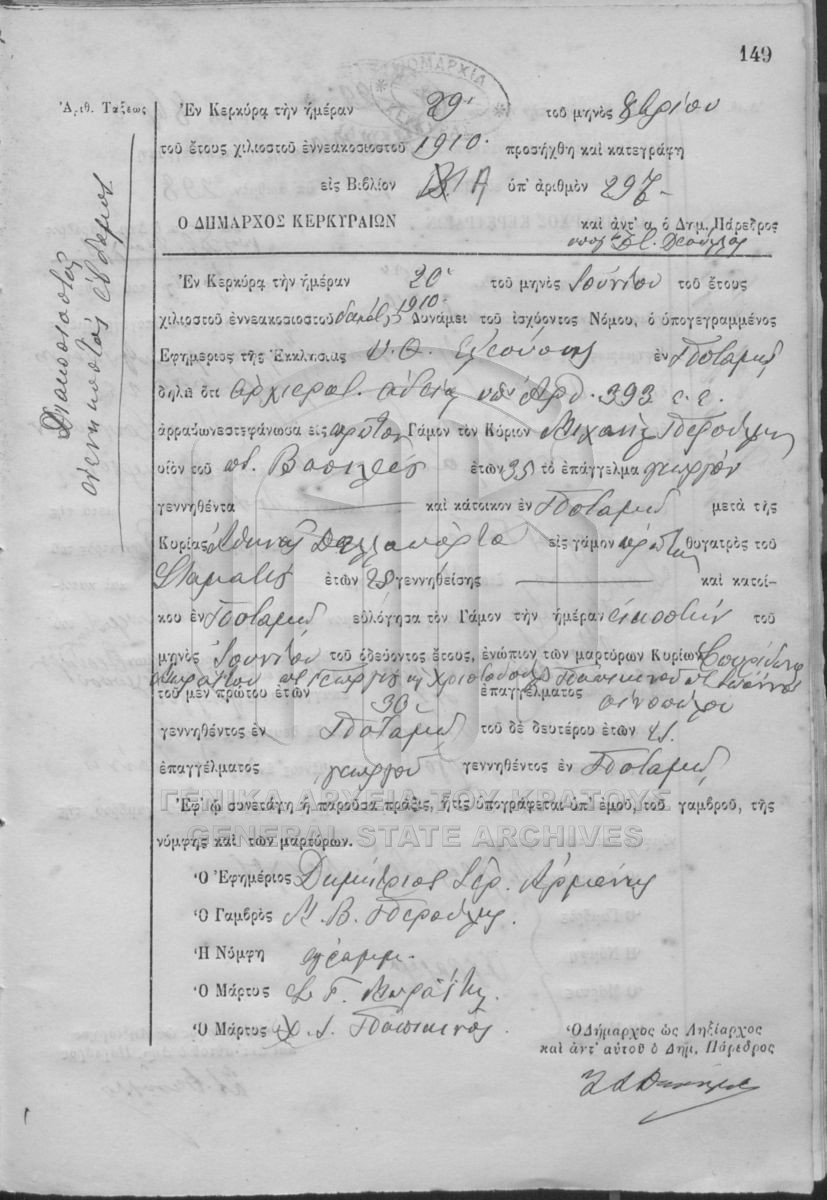 149
Ἀριθ. Τάξεως
Διακοσιοστός
ἐνενηκοστός ἕβδομος
Ἐν Κερκύρᾳ τὴν ἡμέραν 29 τοῦ μηνὸς 8βρίου
τοῦ ἔτους χιλιοστοῦ ἐννεακοσιοστοῦ 1910. προσήχθη καὶ κατεγράφη
εἰς Βιβλίον Α ὑπ' ἀριθμὸν 297
Ο ΔΗΜΑΡΧΟΣ ΚΕΡΚΥΡΑΙΩΝ καὶ ἀντ' α. ὁ Δημ. Πάρεδρος
Ἐν Κερκύρᾳ τὴν ἡμέραν 20 τοῦ μηνὸς Ἰουνίου τοῦ ἔτους
1910.
χιλιοστοῦ ἐννεακοσιοστοῦ Δυνάμει τοῦ ἰσχύοντος Νόμου, ὁ ὑπογεγραμμένος
Ἐφημέριος τῆς Ἐκκλησίας Υ. Θ. Ἐλεούσης ἐν Ποταμῷ
δηλῶ ὅτι ἀρχιερατ. ἀδείᾳ ὑπ' Ἀρθ. 393 ἐ. ἔ.
ἀρραβωνεστεφάνωσα εἰς πρῶτον Γάμον τὸν Κύριον Μιχαὴλ Περούλη
υἱὸν τοῦ ποτ. Βασιλείου ἐτῶν 35 τὸ ἐπάγγελμα γεωργὸν
γεννηθέντα καὶ κάτοικον ἐν Ποταμῷ μετὰ τῆς
Κυρίας Ἀθηνᾶς Δελλαπόρτα εἰς γάμον πρῶτον θυγατρὸς τοῦ
Σταματίου ἐτῶν 28 γεννηθείσης καὶ κατοί-
κου ἐν Ποταμῷ εὐλόγησα τὸν Γάμον τὴν ἡμέραν εἰκοστὴν τοῦ
μηνὸς Ἰουνίου τοῦ ὁδεύοντος ἔτους, ἐνώπιον τῶν μαρτύρων Κυρίων Σπυρίδωνος
Γεωργίου Χριστοδούλου
τοῦ μὲν πρώτου ἐτῶν 30 ἐπαγγέλματος οἰνοπώλου
γεννηθέντος ἐν Ποταμῷ τοῦ δὲ δευτέρου ἐτῶν
ἐπαγγέλματος γεωργοῦ γεννηθέντος ἐν Ποταμῷ
ΓΕΝΙΚΑ ΑΡΧΕΙΑ ΤΟΥ ΚΡΑΤΟΥΣ
Ἐφ' ᾧ συνετάγη ἡ παροῦσα πρᾶξις, ἥτις ὑπογράφεται ὑπ' ἐμοῦ, τοῦ γαμβροῦ, τῆς
GENERAL STATE ARCHIVES
νύμφης καὶ τῶν μαρτύρων.
Ὁ Ἐφημέριος Δημήτριος Ἱερ. Ἀρμενης
Ὁ Γαμβρὸς Μ. Β. Περούλης.
Ἡ Νύμφη ἀγράμμ.
Ὁ Μάρτυς Σ. Γ. Μωραΐτης
Ὁ Μάρτυς Χ. Ι. Παπικινός.
Ὁ Δήμαρχος ὡς Ληξίαρχος
καὶ ἀντ' αὐτοῦ ὁ Δημ. Πάρεδρος